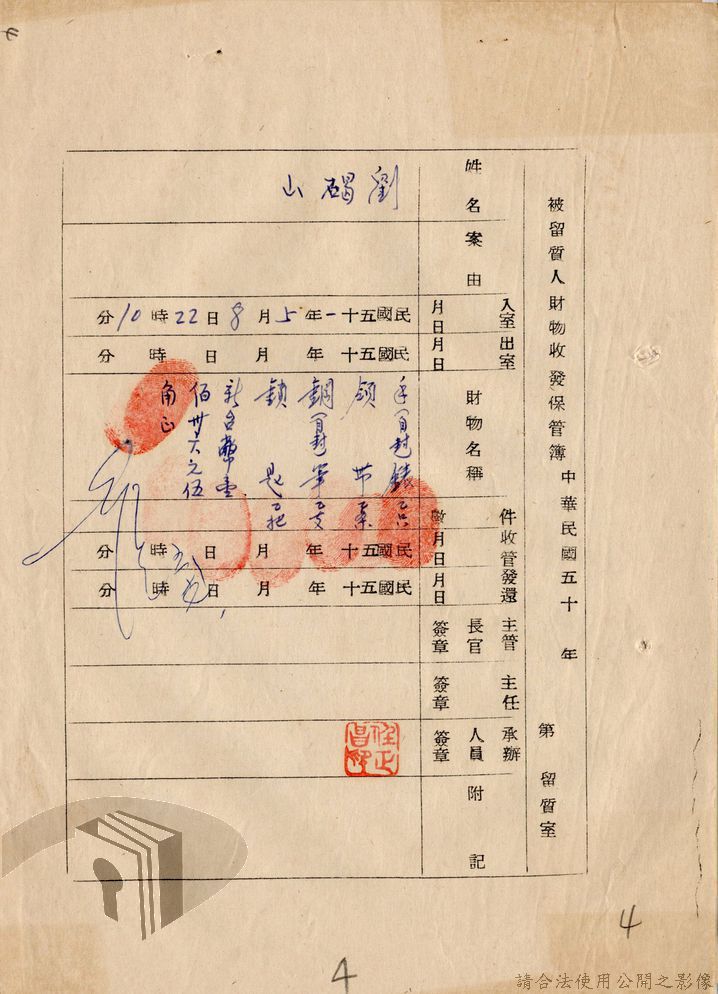 被留質人財物收發保管簿 中華民國五十 年 第 留質室
姓名 劉碣山
案由
入室月日 民國五十一年5月8日22時10分
出室月日 民國五十 年 月 日 時 分
財物名稱 件數
手自封錶乙只
領帶
鋼自封筆乙支
鎖匙乙把
新台幣壹
佰卅六元伍
角正
收管月日 民國五十 年 月 日 時 分
發還月日 民國五十 年 月 日 時 分
主管長官簽章
主任簽章
承辦人員簽章
任正昌印
附記
4
4
請合法使用公開之影像